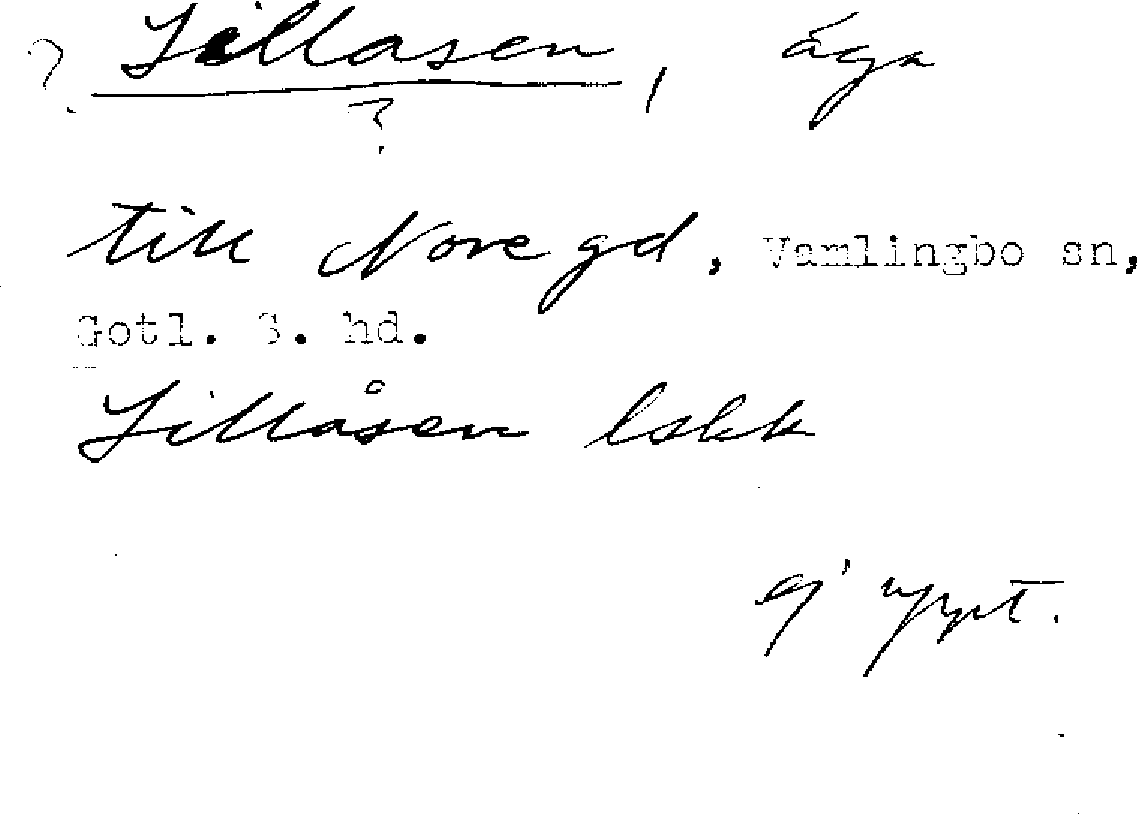 ? Lillasen, äga
?
till Nore gd, Vamlingbo sn,
Gotl. S. hd.
Lillåsen lskk
ej uppt.